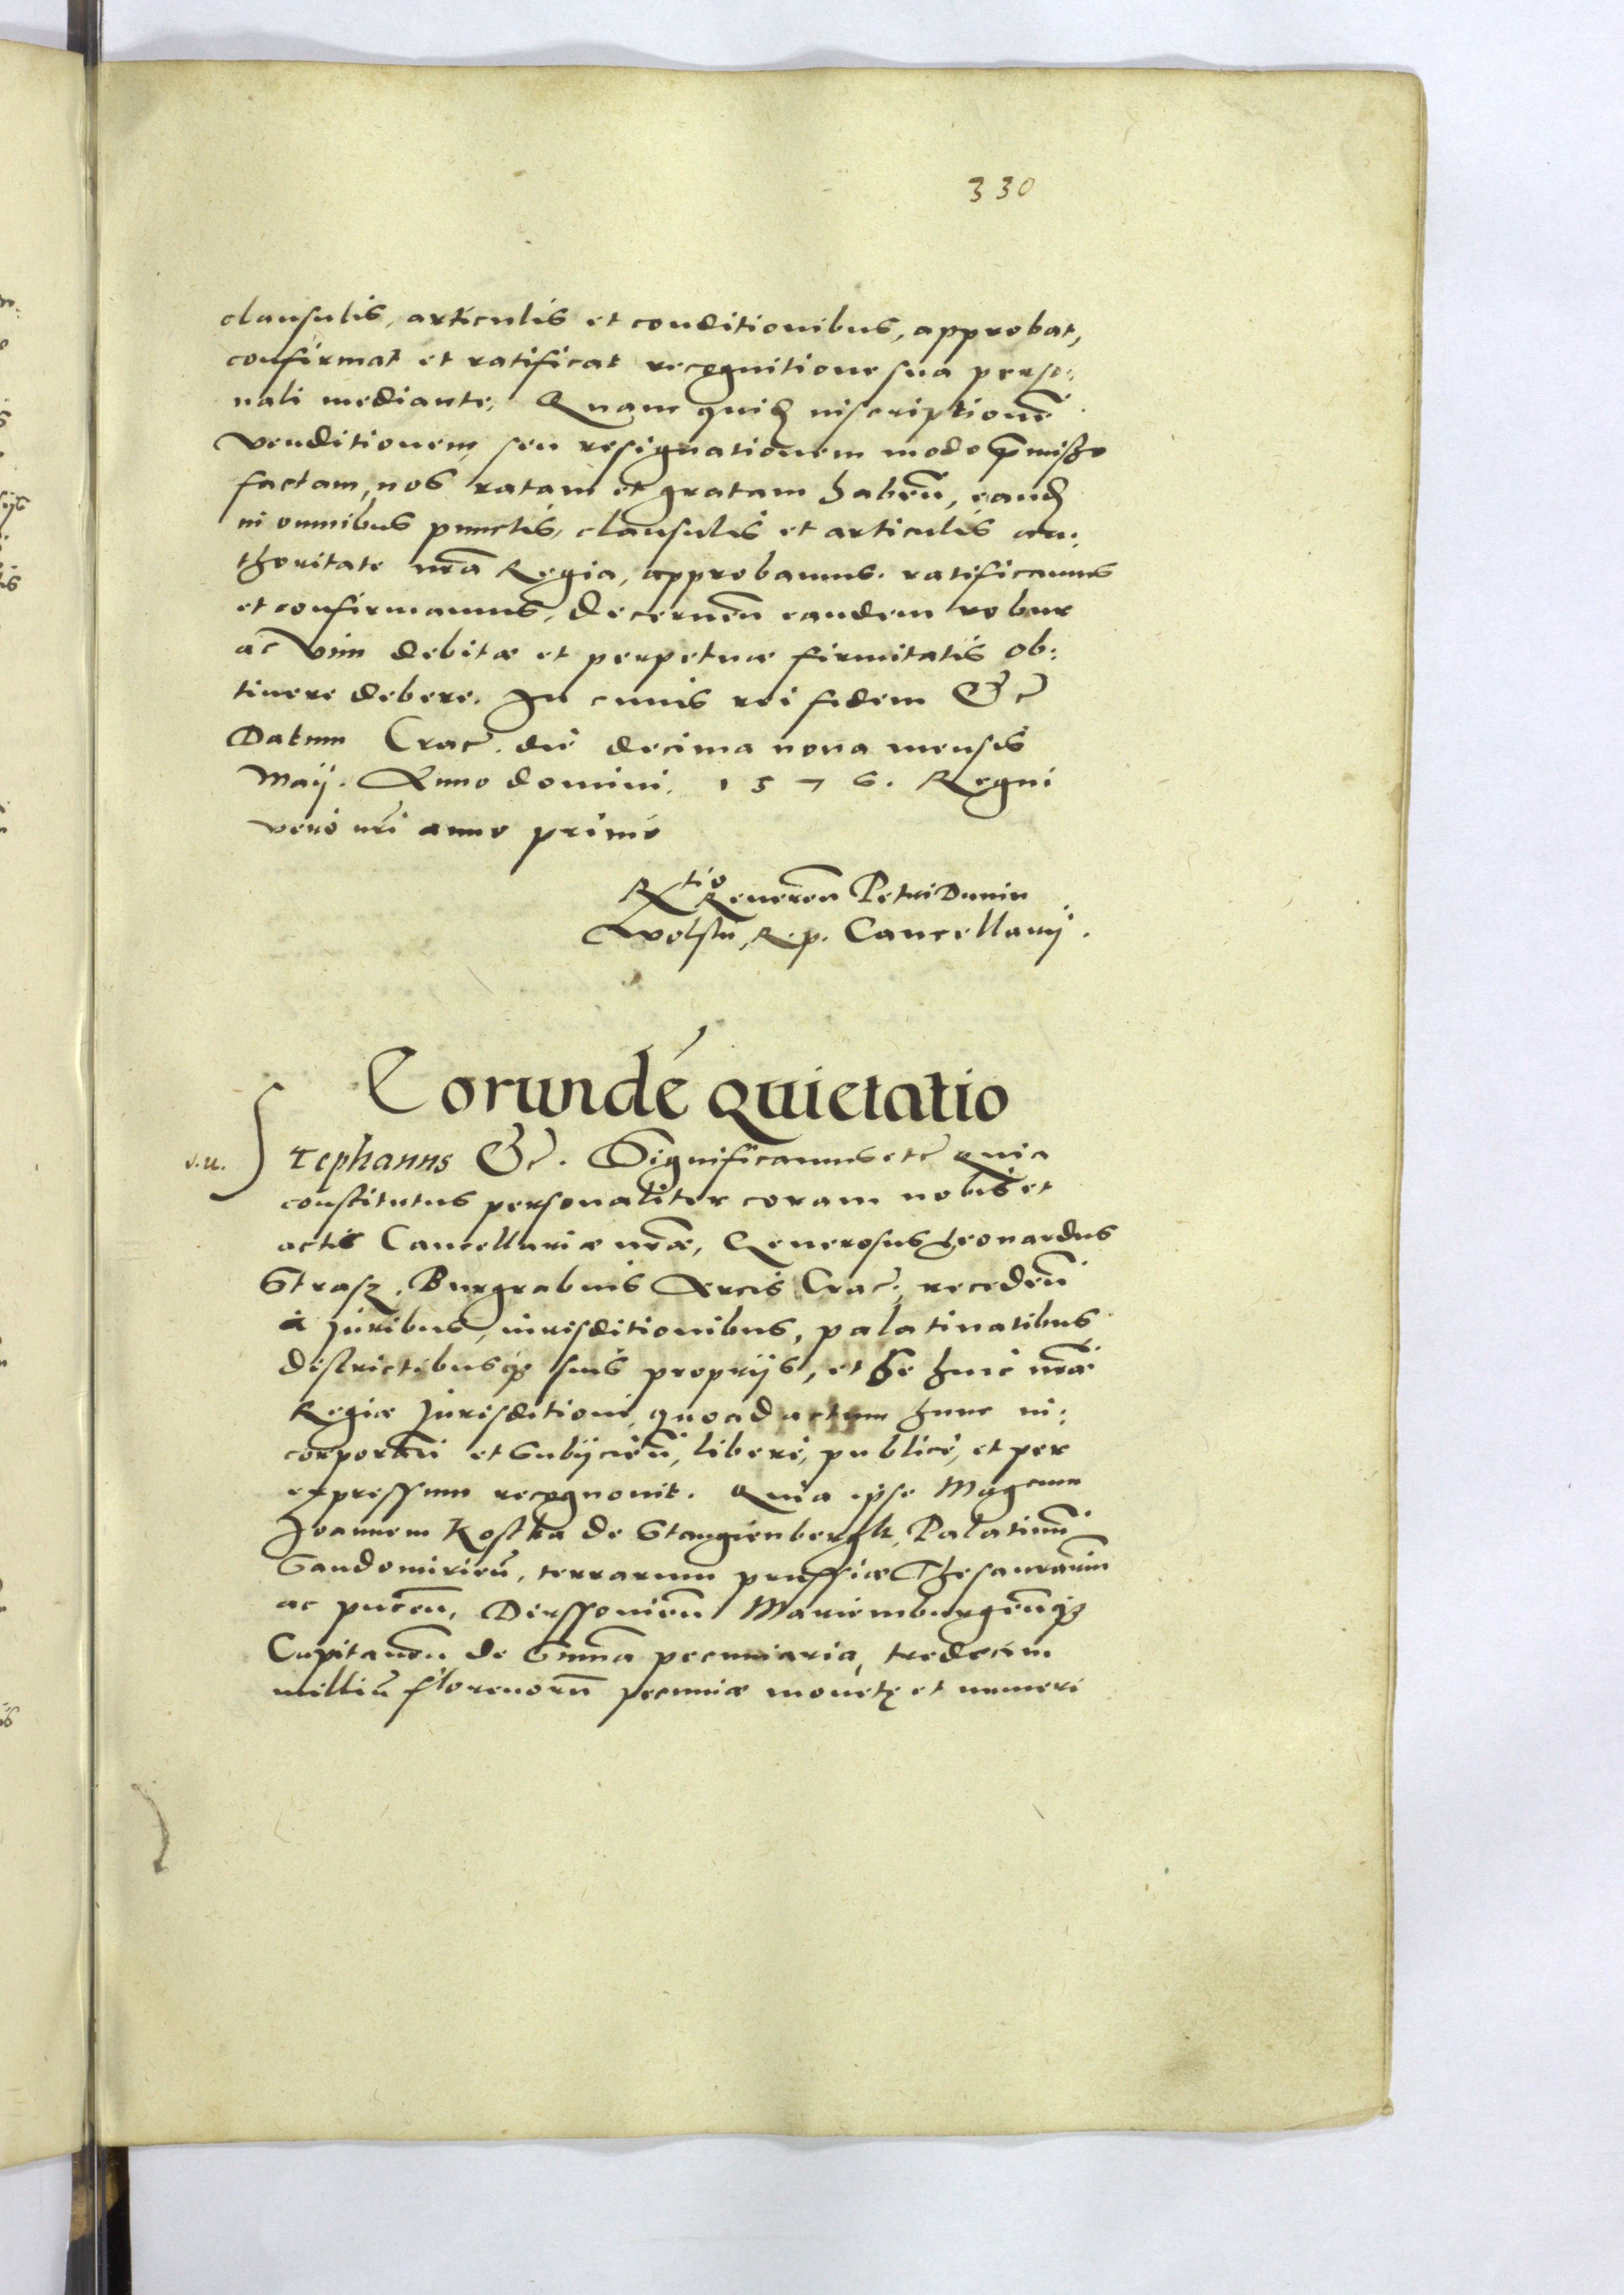 330
clausulis, articulis et conditionibus, approbat,
confirmat et ratificat recognitione sua perso:
nali mediante. Quam quid inscriptionē
venditionem seu resignationem modo p̄misso
factam, nos ratam et gratam habeñ, eand
in omnibus punctis, clausulis et articulis au:
thoritate nr̃a Regia, approbamus. ratificamus
et confirmamus, decerneñ eandem robur
ac vim debitæ et perpetuæ firmitatis ob:
tinere debere. In cuius rei fidem &c
Datum Crac. die decima nona mensis
Maij. Anno domini. 1576. Regni
vero nr̃i anno primo
Rtio Reuereñ Petri Dunin
Wolski, R. p. Cancellarij.
Eorundē quietatio
v.u. Stephanus &c. Significamus etc quia
constitutus personaliter coram nobis et
actis Cancellariæ nr̃æ, Generosus Leonardus
Strasz, Burgrabius Arcis Crac. recedeñ
à Juribus, iurisditionibus, palatinatibus
districtibusq suis proprijs, et se huic nr̃æ
Regiæ Jurisditioni, quoad actum hunc in:
corporañ et subijcieñ, liberè, publicè, et per
expressum recognouit. Quia ipse Magcum
Joannem Kostka de Stangienbergk, Palatinū
Sandomirieñ, terrarum prussiæ Thesaurariū
ac puceñ, Derssouieñ Mariemburgeñq
Capitaneū de Summa pecuniaria, tredecim
milliū florenorū pecuniæ monetę et numeri